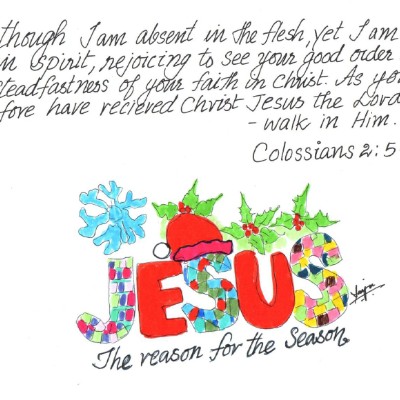 though I am absent in the flesh, yet I am
in spirit, rejoicing to see your good order
steadfastness of your faith in Christ. As you
fore have recieved Christ Jesus the Lord
- walk in Him.
Colossians 2:5
JESUS
The reason for the Season